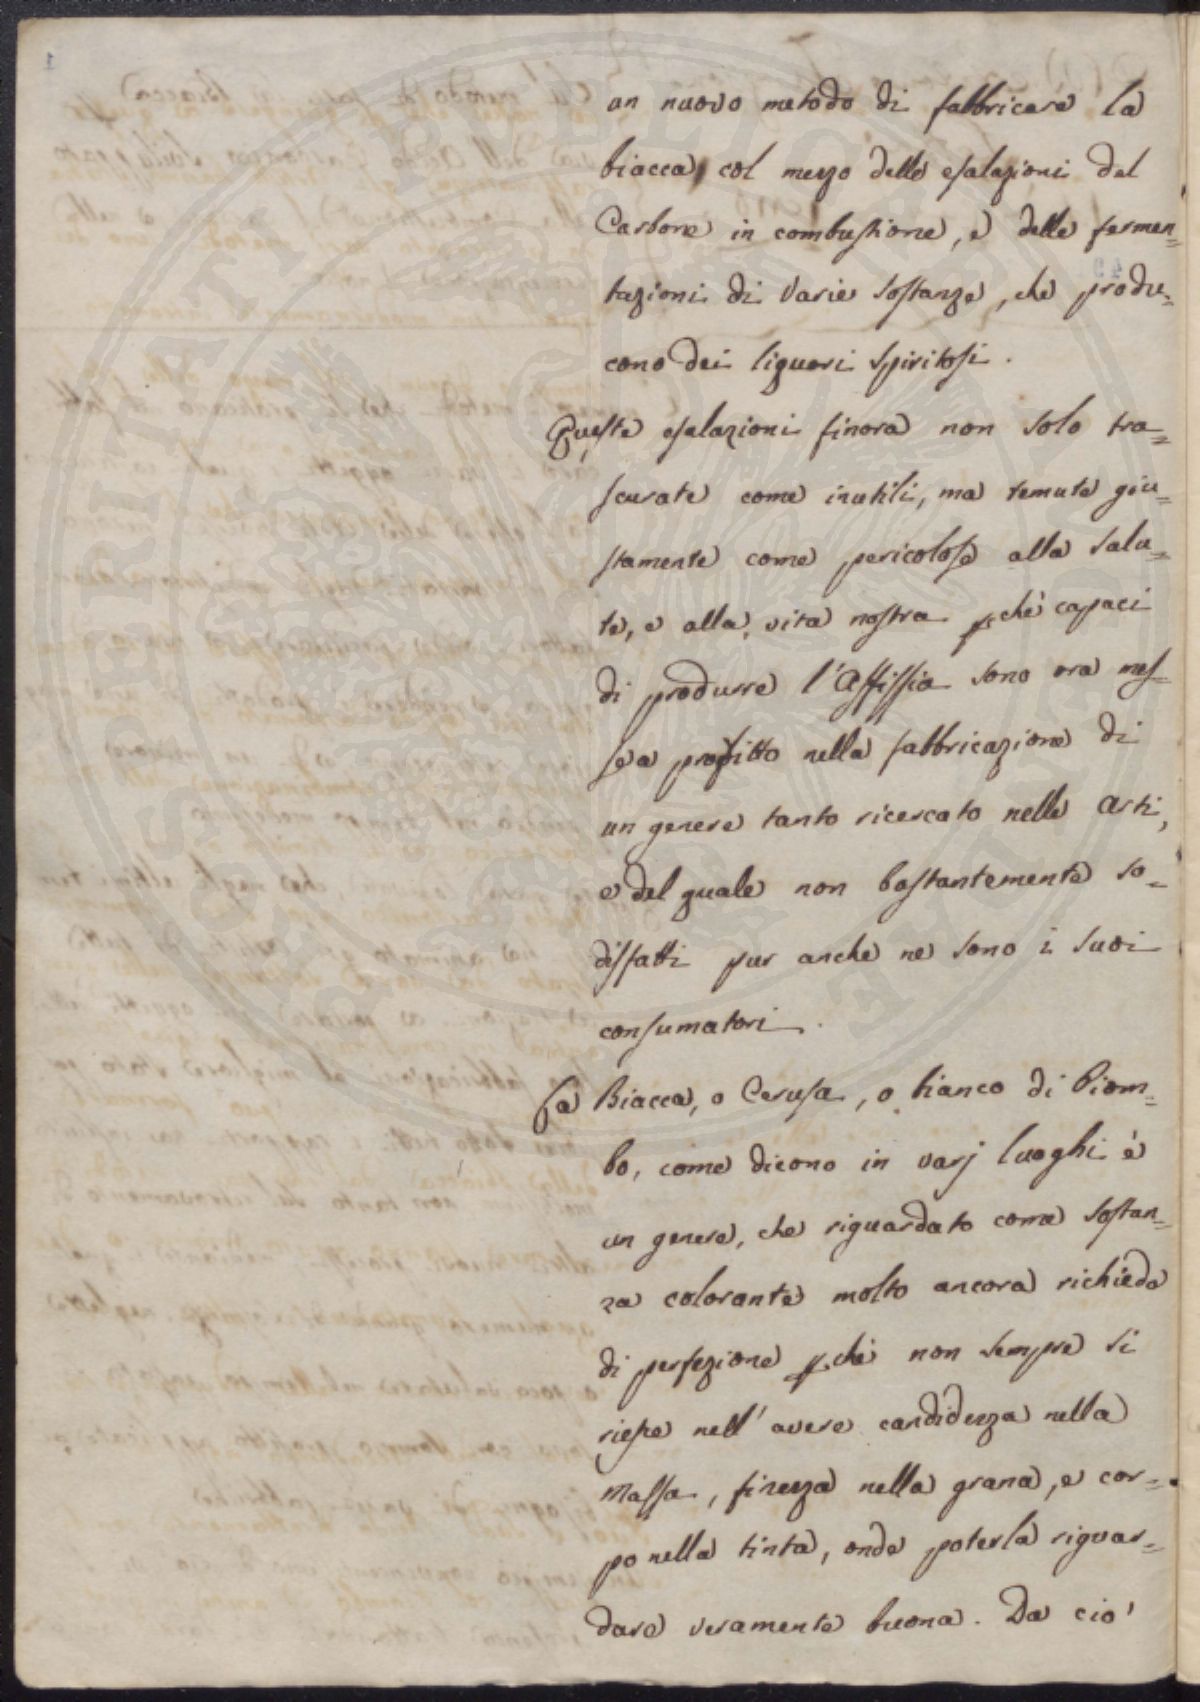 un nuovo metodo di fabbricare la
biacca col mezzo delle esalazioni del
Carbone in combustione, e delle fermen=
tazioni di varie sostanze, che produ=
cono dei liquori spiritosi.
Queste esalazioni finora non solo tra=
scurate come inutili, ma temute giu=
stamente come pericolose alla salu=
te, e alla vita nostra pchè capaci
di produrre l'Assissia sono ora mes=
se a profitto nella fabbricazione di
un genere tanto ricercato nelle Arti,
e del quale non bastantemente so=
disfatti pur anche ne sono i suoi
consumatori.
La Biacca, o Cerusa, o bianco di Piom=
bo, come dicono in varj luoghi è
un genere, che riguardato come sostan=
za colorante molto ancora richiede
di perfezione pchè non sempre si
riesce nell'avere candidezza nella
Massa, finezza nella grana, e cor=
po nella tinta, onde poterla riguar=
dare veramente buona. Da ciò